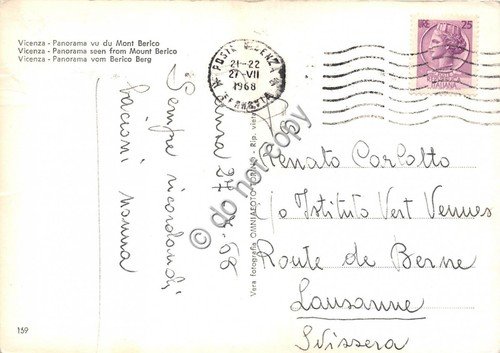 Vicenza - Panorama vu du Mont Berico
Vicenza - Panorama seen from Mount Berico
Vicenza - Panorama vom Berico Berg
POSTE VICENZA
21-22
27·VII
1968
FERROVIA
LIRE 25
ITALIANA
Vicenza 27-7-68
Sempre ricordandoti
bacioni nonna
Vera fotografia OMNIAFOTO TORINO - Rip. vietata
Renato Carlotto
c/o Istituto Vert Vennes
Route de Berne
Lausanne
Svizzera
159
do not copy